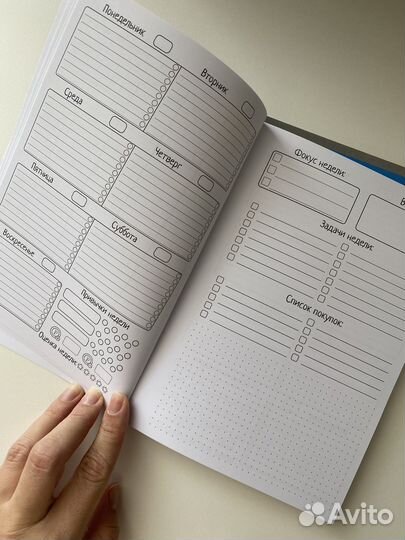 Понедельник
Вторник
Среда
Четверг
Пятница
Суббота
Воскресенье
Привычки недели
Оценка недели:
Фокус недели:
Задачи недели:
Список покупок:
Avito